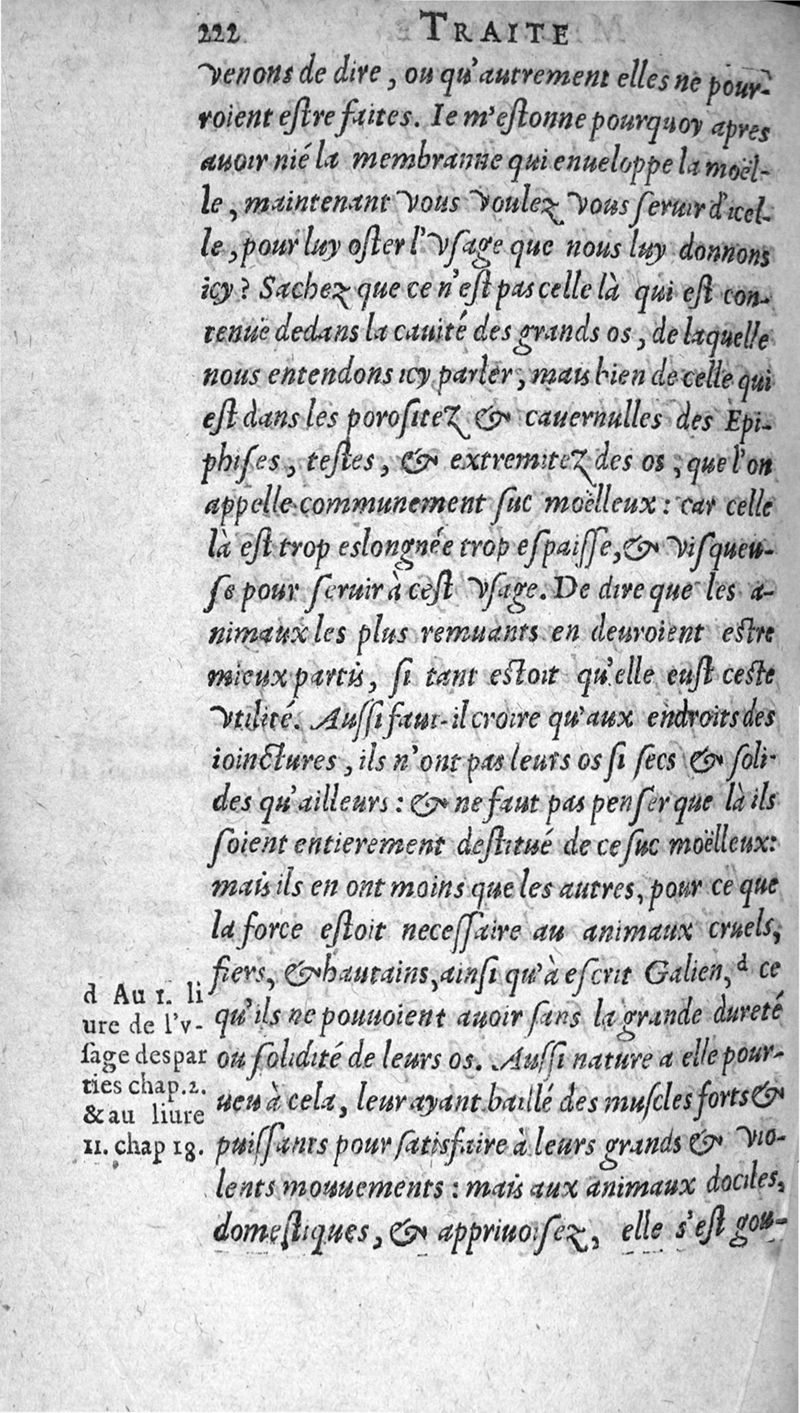 222 TRAITE
venons de dire, ou qu'autrement elles ne pour-
roient estre faites. Ie m'estonne pourquoy apres
auoir nié la membranne qui enueloppe la moël-
le, maintenant vous voulez vous seruir d'icel-
le, pour luy oster l'vsage que nous luy donnons
icy? Sachez que ce n'est pas celle là qui est con-
tenuë dedans la cauité des grands os, de laquelle
nous entendons icy parler, mais bien de celle qui
est dans les porositez & cauernulles des Epi-
phises, testes, & extremitez des os, que l'on
appelle communement suc moëlleux: car celle
là est trop eslongnée trop espaisse, & visqueu-
se pour seruir à cest vsage. De dire que les a-
nimaux les plus remuants en deuroient estre
mieux partis, si tant estoit qu'elle eust ceste
vtilité. Aussi faut-il croire qu'aux endroits des
ioinctures, ils n'ont pas leurs os si secs & soli-
des qu'ailleurs: & ne faut pas penser que là ils
soient entierement destitué de ce suc moëlleux:
mais ils en ont moins que les autres, pour ce que
la force estoit necessaire au animaux cruels,
fiers, & hautains, ainsi qu'à escrit Galien, d ce
qu'ils ne pouuoient auoir sans la grande dureté
ou solidité de leurs os. Aussi nature a elle pour-
ueu à cela, leur ayant baillé des muscles forts &
puissants pour satisfaire à leurs grands & vio-
lents mouuements: mais aux animaux dociles,
domestiques, & appriuoisez, elle s'est gou-
d Au 1. li
ure de l'v-
sage des par
ties chap. 2.
& au liure
11. chap 18.